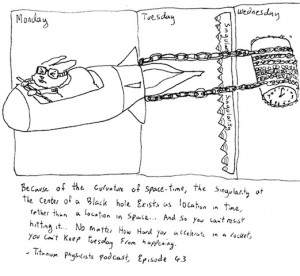 Monday
Tuesday
Wednesday
Singularity
Because of the curvature of space-time, the singularity at
the center of a Black hole Exists as location in time,
rather than a location in space... And so you can't resist
hitting it... No matter How Hard you accelerate in a rocket,
you can't Keep Tuesday From happening.
- Titanium Physicists podcast, Episode 43